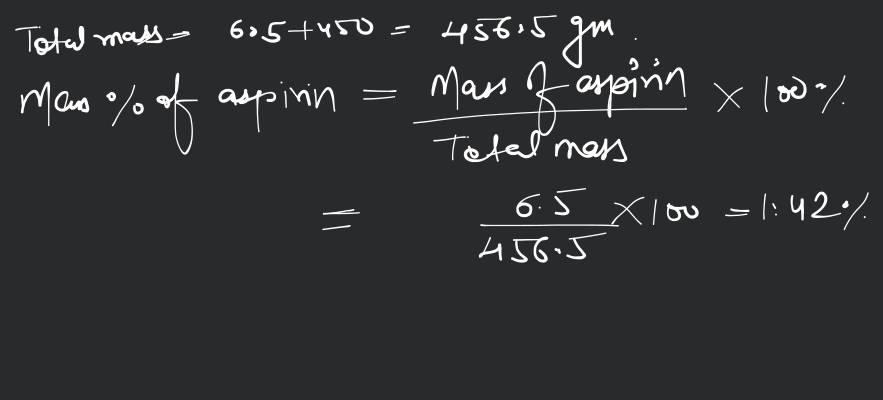 Total mass = 6.5+450 = 456.5 gm.
Mass % of aspirin = Mass of aspirin / Total mass × 100%
= 6.5 / 456.5 × 100 = 1.42%